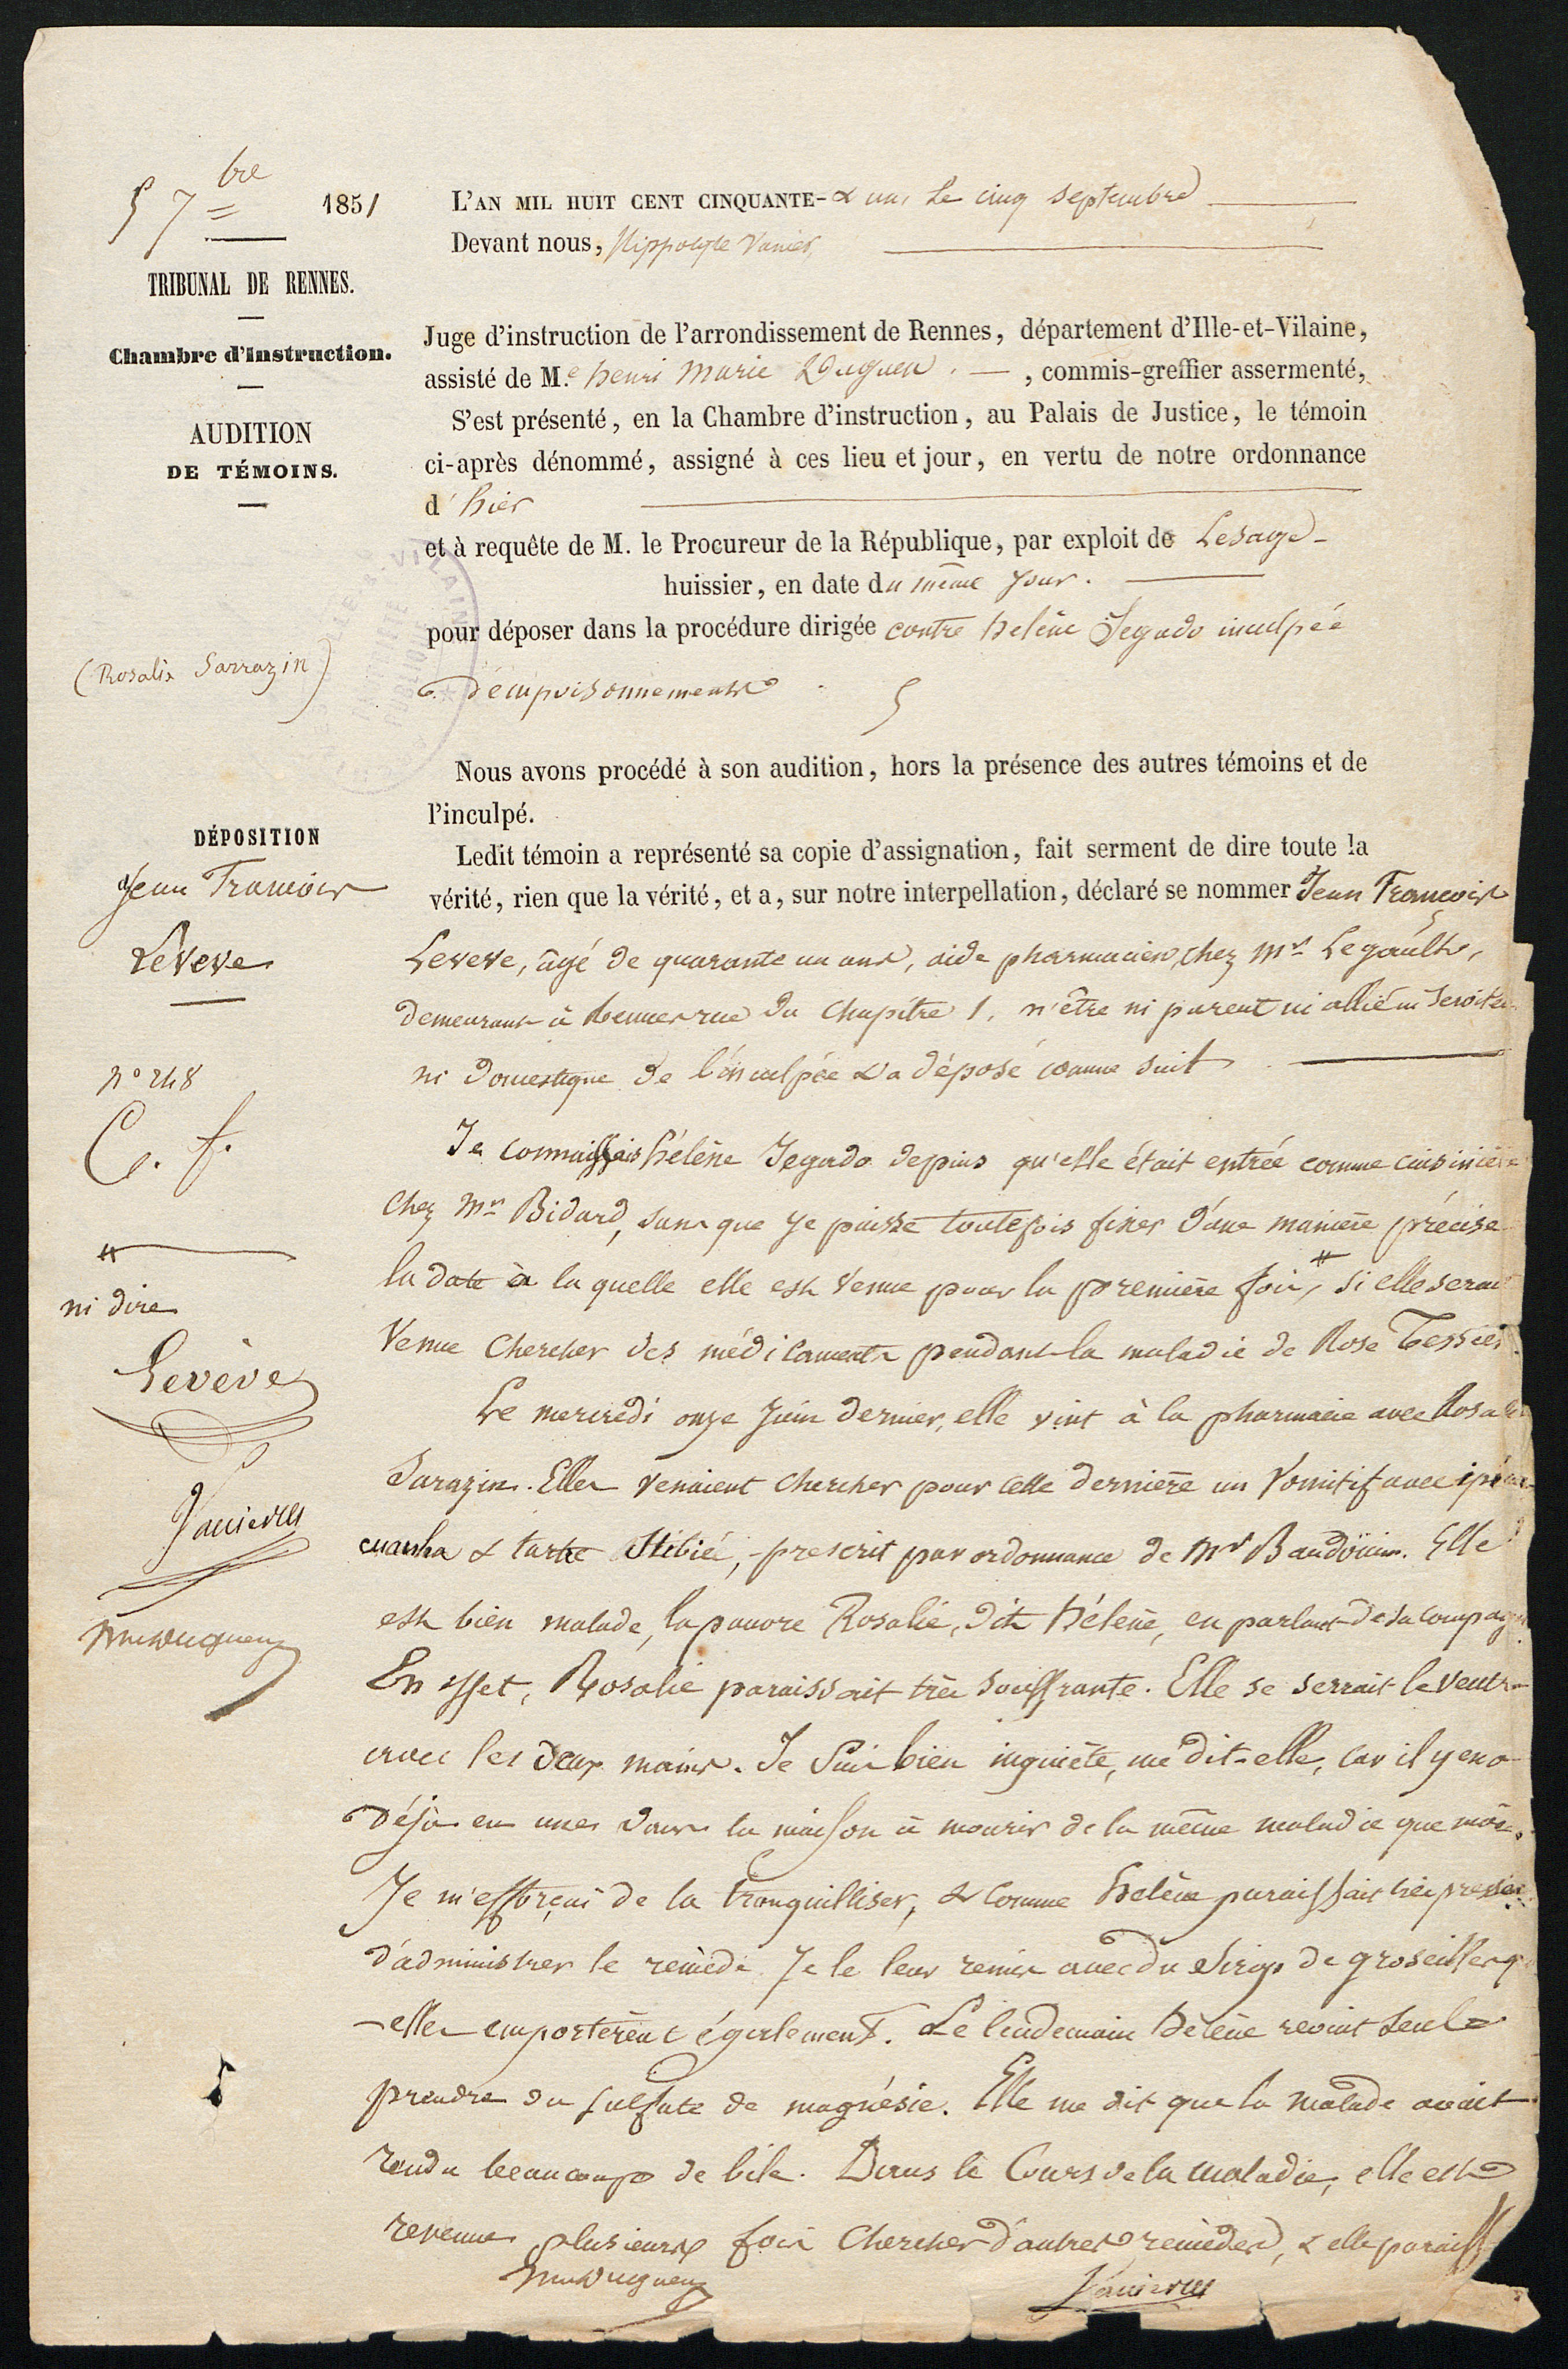 5 7bre 1851
TRIBUNAL DE RENNES.
Chambre d'Instruction.
AUDITION
DE TÉMOINS.
(Rosalie Sarrazin)
DÉPOSITION
Jean François
Levêve
n° 248
C. f.
#
ni dire
Levêve
Vanier
L'AN MIL HUIT CENT CINQUANTE-& un, Le cinq septembre
Devant nous, Hippolyte Vanier,
Juge d'instruction de l'arrondissement de Rennes, département d'Ille-et-Vilaine,
assisté de M.e henri Marie Duguen, commis-greffier assermenté,
S'est présenté, en la Chambre d'instruction, au Palais de Justice, le témoin
ci-après dénommé, assigné à ces lieu et jour, en vertu de notre ordonnance
d'hier
et à requête de M. le Procureur de la République, par exploit de Lesage
huissier, en date du même jour.
pour déposer dans la procédure dirigée contre helène Jegado inculpée
d'empoisonnements
Nous avons procédé à son audition, hors la présence des autres témoins et de
l'inculpé.
Ledit témoin a représenté sa copie d'assignation, fait serment de dire toute la
vérité, rien que la vérité, et a, sur notre interpellation, déclaré se nommer Jean François
Leveve, âgé de quarante un ans, aide pharmacien, chez Mr Legault,
demeurant à Rennes rue du Chapitre 1, n'être ni parent ni allié ni serviteur
ni domestique de l'inculpée & a déposé comme suit
Je connaissais hélène Jegado depuis qu'elle était entrée comme cuisinière
chez Mr Bidard, sans que je puisse toutefois fixer d'une manière précise
la date à la quelle elle est venue pour la première fois, # si elle serait
venue chercher des médicaments pendant la maladie de Rose Tessier.
Le mercredi onze juin dernier, elle vint à la pharmacie avec Rosalie
Sarazin. Elles venaient chercher pour cette dernière un vomitif avec ipéca
cuanha & tartre stibié, prescrit par ordonnance de Mr Baudouin. Elle
est bien malade, la pauvre Rosalie, dit hélène, en parlant de sa compagne.
En effet, Rosalie paraissait très souffrante. Elle se serrait le ventre
avec les deux mains. Je suis bien inquiète, me dit-elle, car il y en a
déjà eu une dans la maison à mourir de la même maladie que moi.
Je m'efforçai de la tranquilliser, & comme helène paraissait très pressée
d'administrer le remède je le leur remis avec du sirop de groseilles q
-elles emportèrent également. Le lendemain hélène revint seule
prendre du sulfate de magnésie. Elle me dit que la malade avait
rendu beaucoup de bile. Dans le cours de la maladie, elle est
revenue plusieurs fois chercher d'autres remèdes, & elle paraiss
Vanier